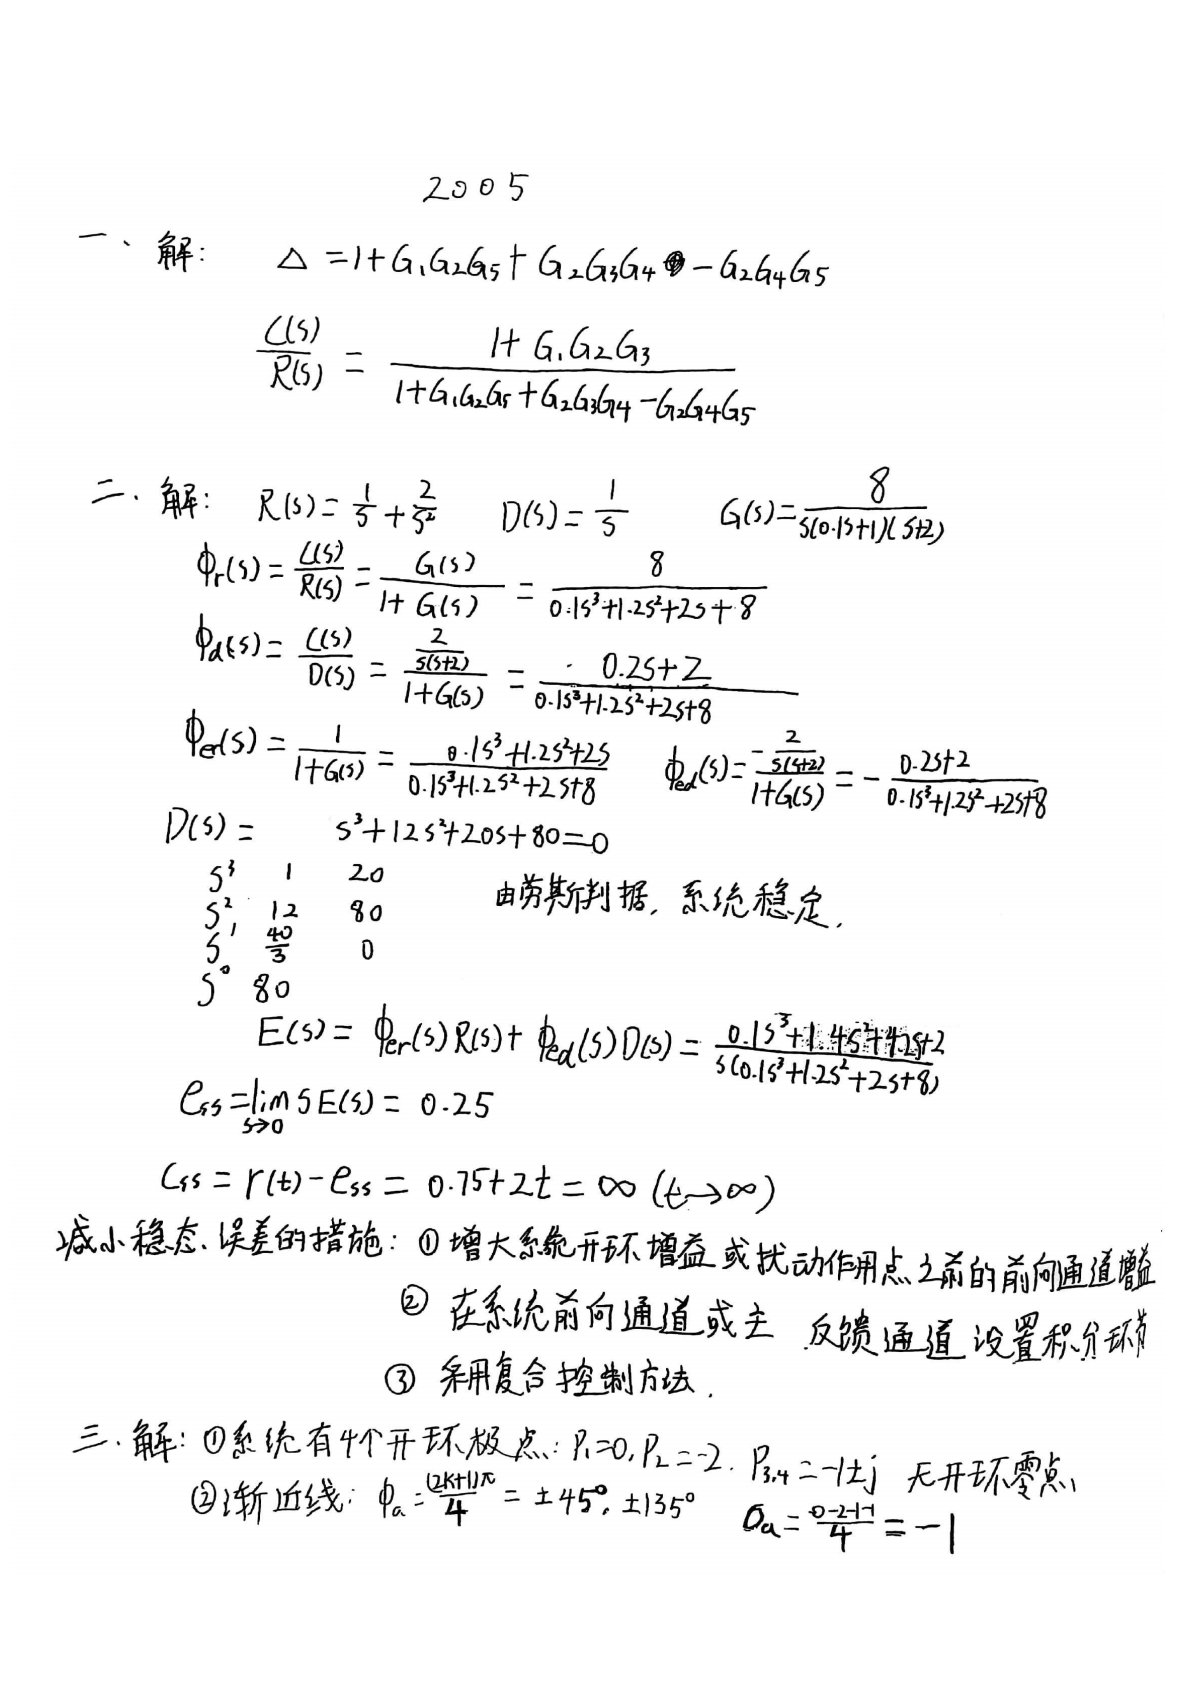 2005
一、解: △ =1+G₁G₂G₅+G₂G₃G₄ -G₂G₄G₅
C(s)/R(s) = (1+G₁G₂G₃)/(1+G₁G₂G₅+G₂G₃G₄-G₂G₄G₅)
二、解: R(s)=1/s+2/s² D(s)=1/s G(s)=8/(s(0.1s+1)(s+2))
Φr(s)=C(s)/R(s)=G(s)/(1+G(s))=8/(0.1s³+1.2s²+2s+8)
Φd(s)=C(s)/D(s)=(2/(s(s+2)))/(1+G(s))=(0.2s+2)/(0.1s³+1.2s²+2s+8)
Φer(s)=1/(1+G(s))=(0.1s³+1.2s²+2s)/(0.1s³+1.2s²+2s+8) Φed(s)=(-2/(s(s+2)))/(1+G(s))=-(0.2s+2)/(0.1s³+1.2s²+2s+8)
D(s)= s³+12s²+20s+80=0
s³ 1 20
s² 12 80 由劳斯判据,系统稳定.
s¹ 40/3 0
s⁰ 80
E(s)=Φer(s)R(s)+Φed(s)D(s)=(0.1s³+1.4s²+4.2s+2)/(s(0.1s³+1.2s²+2s+8))
ess=lim s→0 SE(s)=0.25
Css=r(t)-ess=0.75+2t=∞ (t→∞)
减小稳态误差的措施:①增大系统开环增益或扰动作用点之前的前向通道增益
② 在系统前向通道或主 反馈通道设置积分环节
③ 采用复合控制方法.
三.解:①系统有4个开环极点:P₁=0,P₂=-2. P₃,₄=-1±j 无开环零点
②渐近线: φa=(2k+1)π/4=±45°,±135° σa=(0-2-1-1)/4=-1